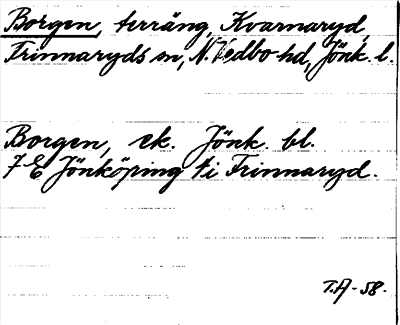 Borgen, terräng, Kvarnaryd,
Frinnaryds sn, N. Vedbo hd, Jönk. l.
Borgen, ek. Jönk. bl.
7 E Jönköping ti Frinnaryd.
T.A-58.